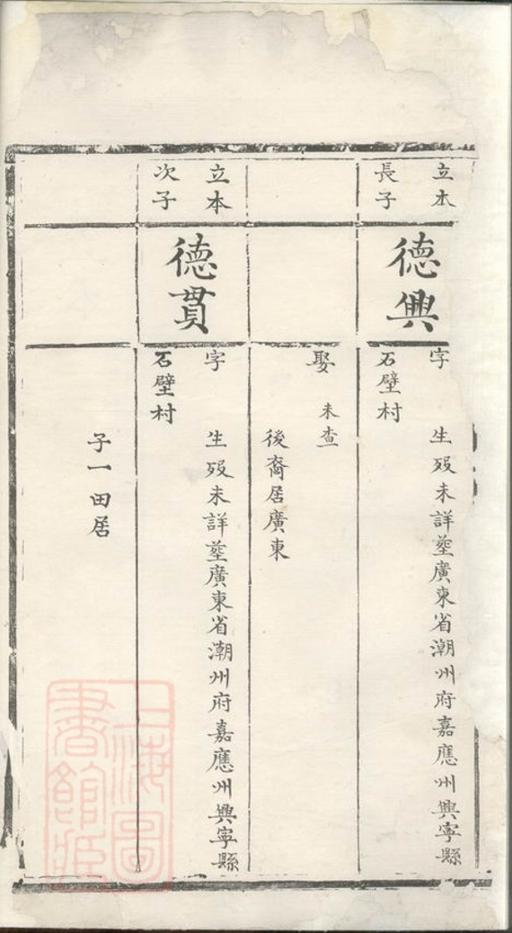 立本
長子
德興
字
生歿未詳塟廣東省潮州府嘉應州興寧縣
石壁村
娶未查
後裔居廣東
立本
次子
德貫
字
生歿未詳塟廣東省潮州府嘉應州興寧縣
石壁村
子一田居
上海圖
書館藏